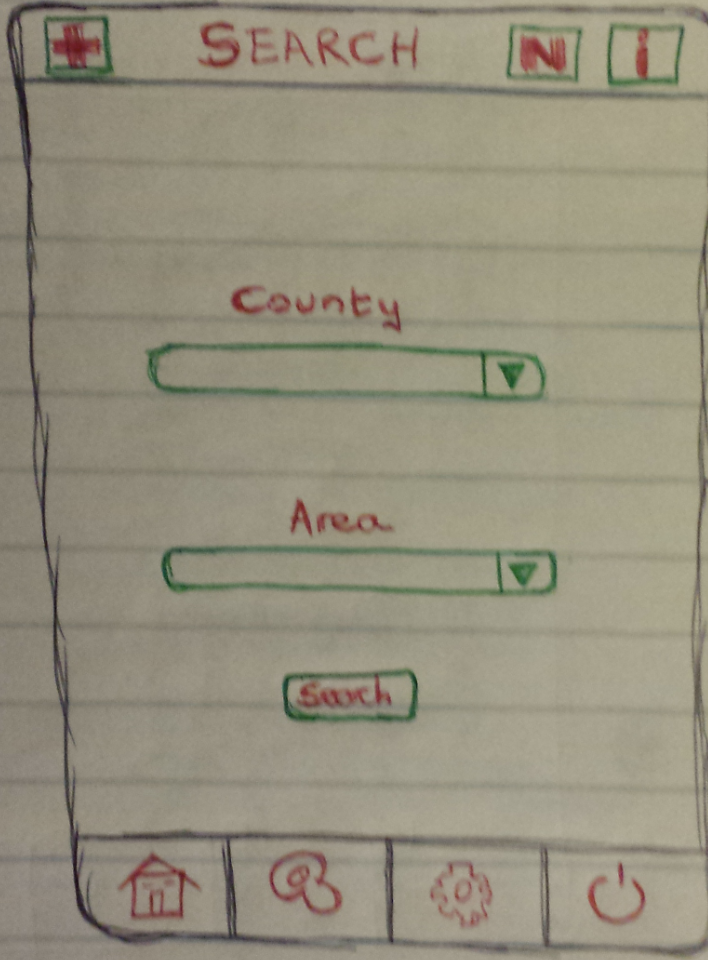 SEARCH N i
County
Area
Search